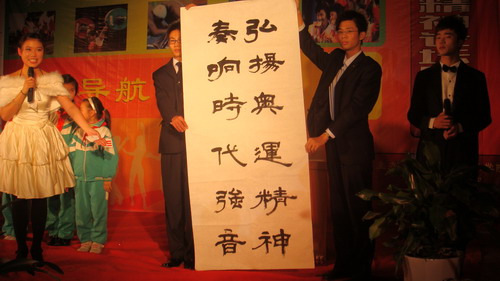 弘揚奧運精神
奏响時代強音
导航